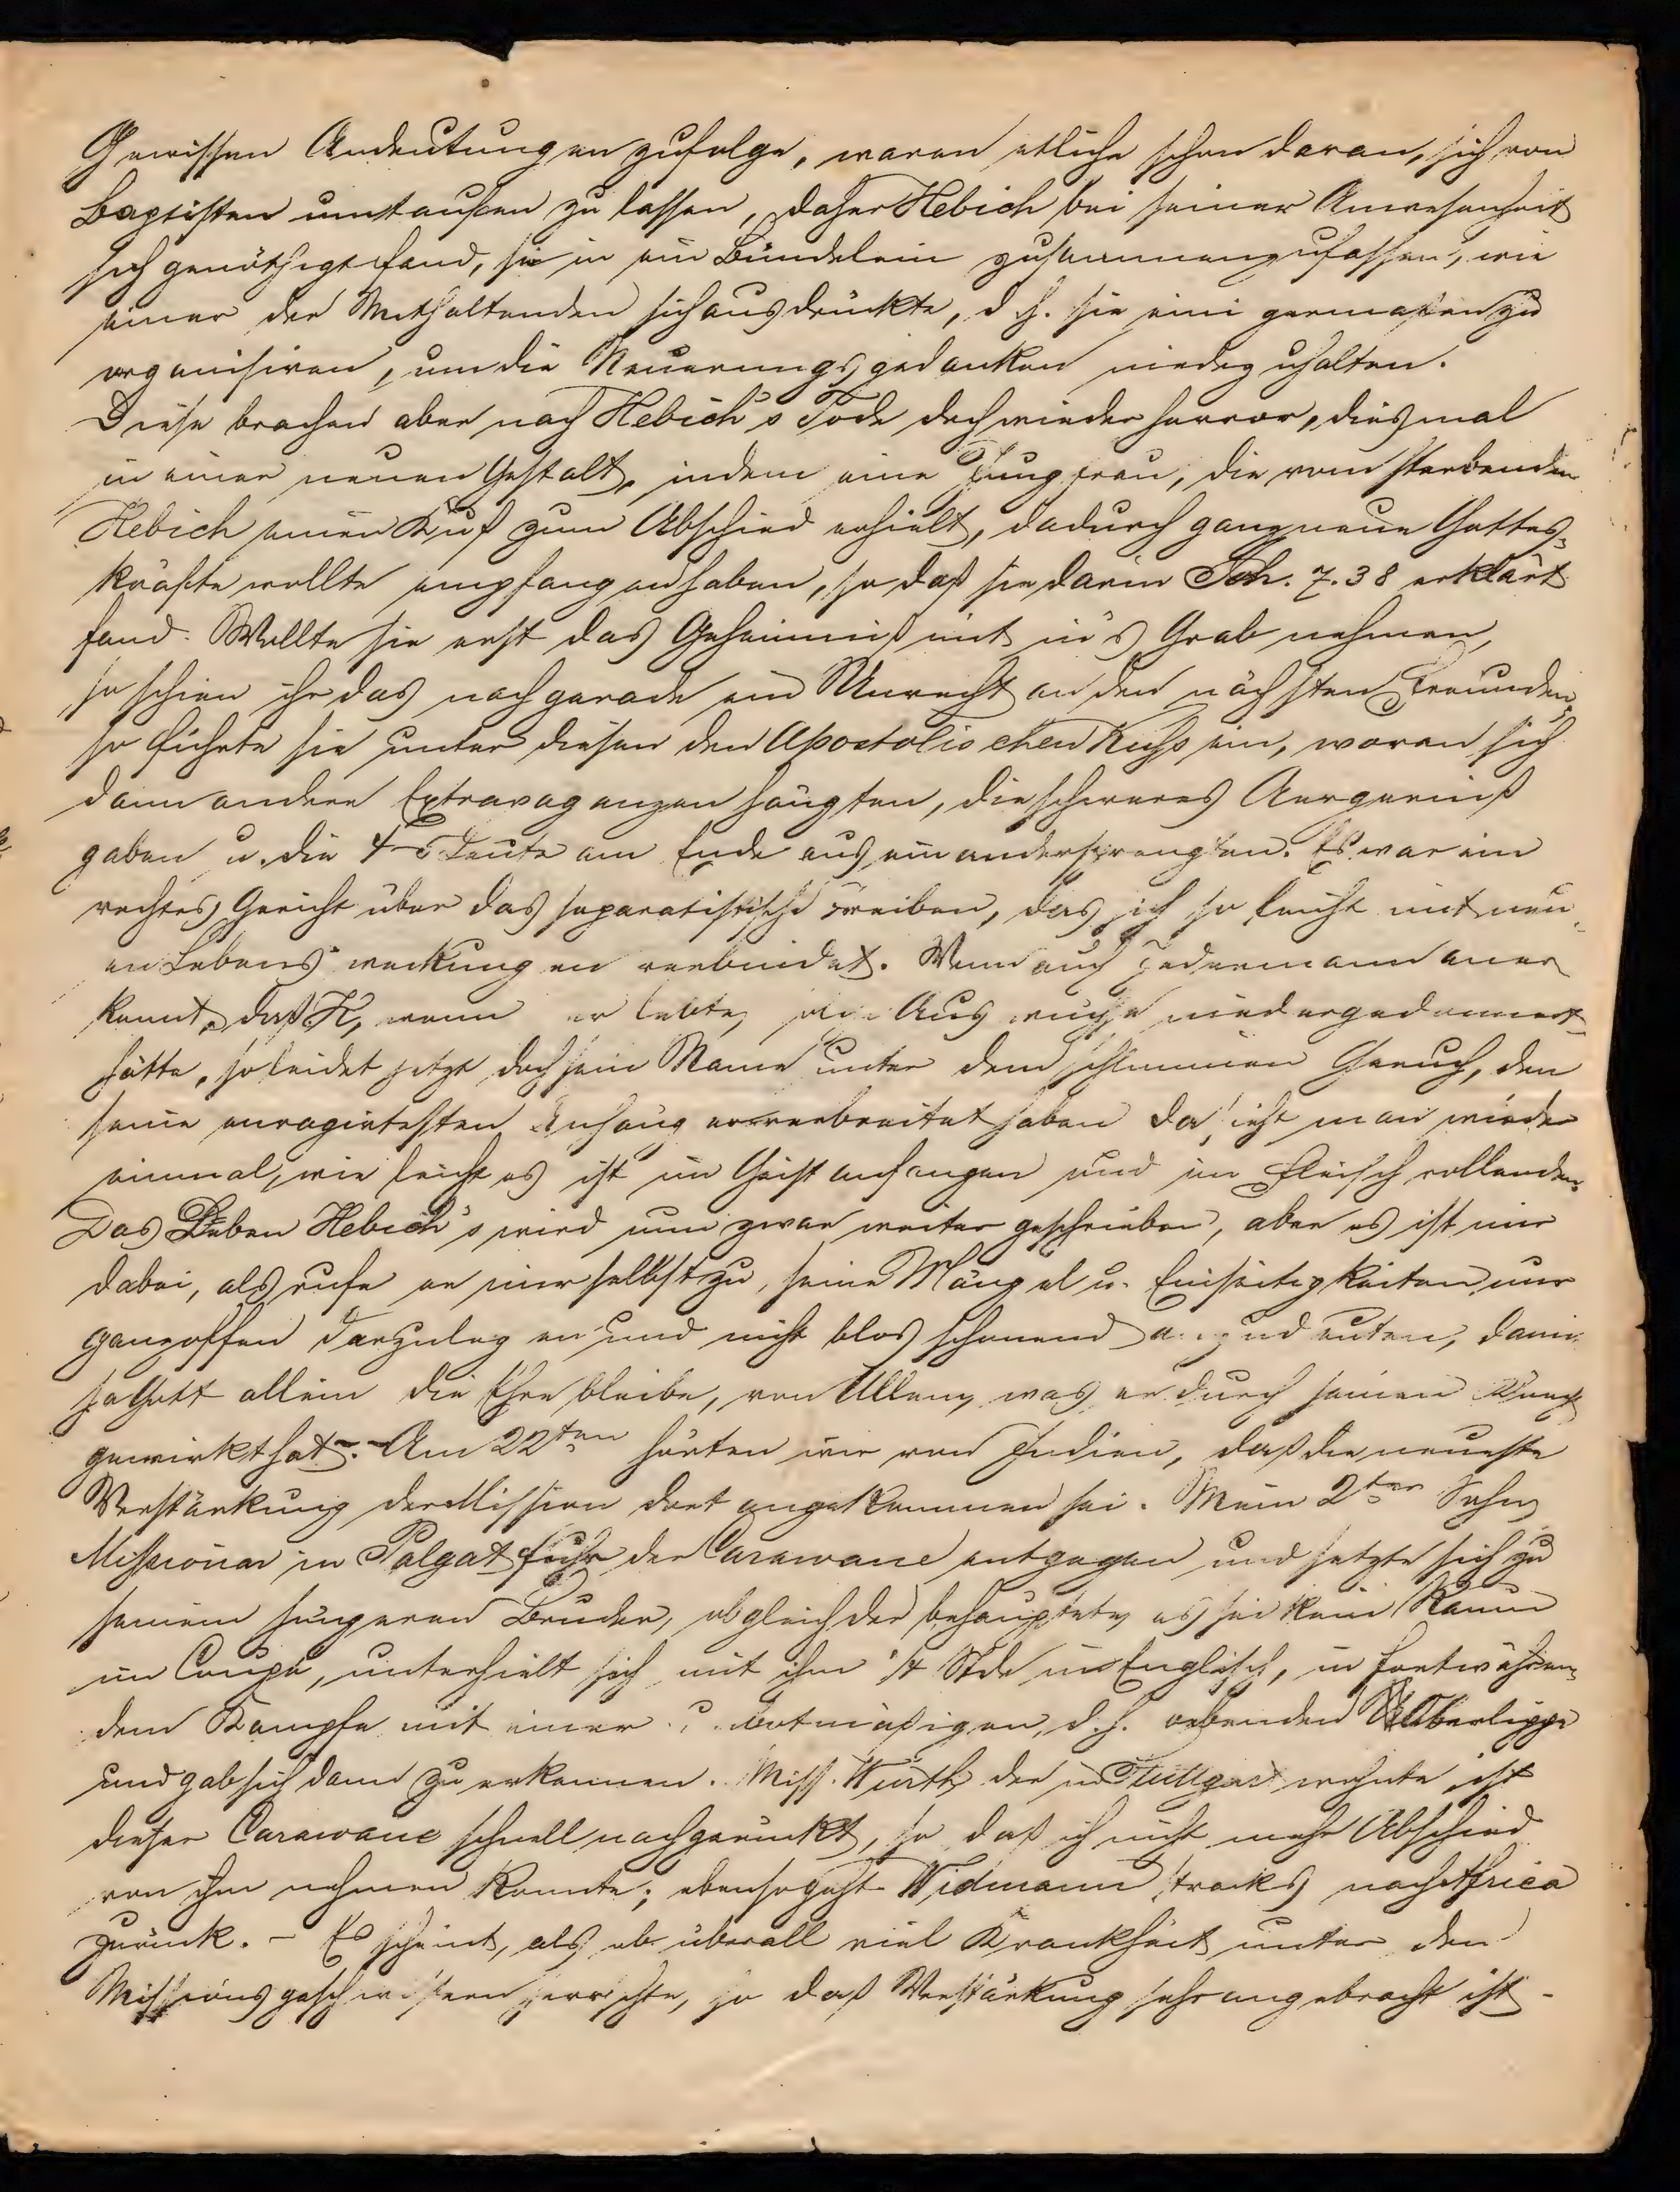 Gewissen Andeutungen zufolge, waren etliche schon daran, sich von
Baptisten umtaufen zu lassen, daher Hebich bei seiner Anwesenheit
sich genöthigt fand, sie in ein Bündelein zusammenzufassen, wie
einer der Mithaltenden sich ausdrückte, d. h. sie eini germaßen zu
organisiren, um die Neuerungsgedanken niederzuhalten.
Diese brachen aber nach Hebich's Tode doch wieder hervor, diesmal
in einer neuen Gestalt, indem eine Jungfrau, die vom sterbenden
Hebich einen Kuß zum Abschied erhielt, dadurch ganz neue Gottes-
kräfte wollte empfangen haben, so daß sie darin Joh. 7. 38 erklärt
fand. Wollte sie erst das Geheimniß mit in's Grab nehmen,
so schien ihr das nachgerade ein Unrecht an den nächsten Freunden,
so führte sie unter diesen den Apostolischen Kuss ein, woran sich
dann andere Extravaganzen hängten, die schweres Aergerniß
gaben u. die Leute am Ende auseinandersprengten. Es war ein
rechtes Gericht über das separatistische Treiben, das sich so leicht mit neu-
en Lebens weckungen verbindet. Wenn auch Jedermann aner
kennt, daß H, wenn er lebte, Auswüchse niedergedonnert
hätte, so leidet jetzt doch sein Name unter dem schlimmen Geruch, den
seine enragirtesten Anhänger verbreitet haben da sieht man wieder
einmal, wie leicht es ist im Geist anfangen und im Fleisch vollenden.
Das Leben Hebich's wird nun zwar weiter geschrieben, aber es ist mir
dabei, als rufe er mir selbst zu, seine Mängel u. Einseitigkeiten nur
ganz offen darzulegen und nicht blos schonend anzudeuten, damit
ja Gott allein die Ehre bleibe, von Allem, was er durch seinen Knecht
gewirkt hat. - Am 22ten hörten wir von Indien, daß die neueste
Verstärkung der Mission dort angekommen sei. Mein 2ter Sohn,
Missionar in Palgat fuhr der Carawane entgegen und setzte sich zu
seinem jüngeren Bruder, obgleich der behauptete, es sei kein Raum
im Coupé, unterhielt sich mit ihm 1/4 Stde im Englisch, in fortwähren-
dem Kampfe mit einer botmäßigen, d. h. bebenden Oberlippe
und gab sich dann zu erkennen. Miss. Würth, der in Stuttgart wohnte, ist
dieser Carawane schnell nachgerückt, so daß ich nicht mehr Abschied
von ihm nehmen konnte; ebenso geht Widmann stracks nach Africa
zurück. - Es scheint, als ob überall viel Krankheit unter den
Missionsgeschwistern herrschte, so daß Verstärkung sehr angebracht ist -